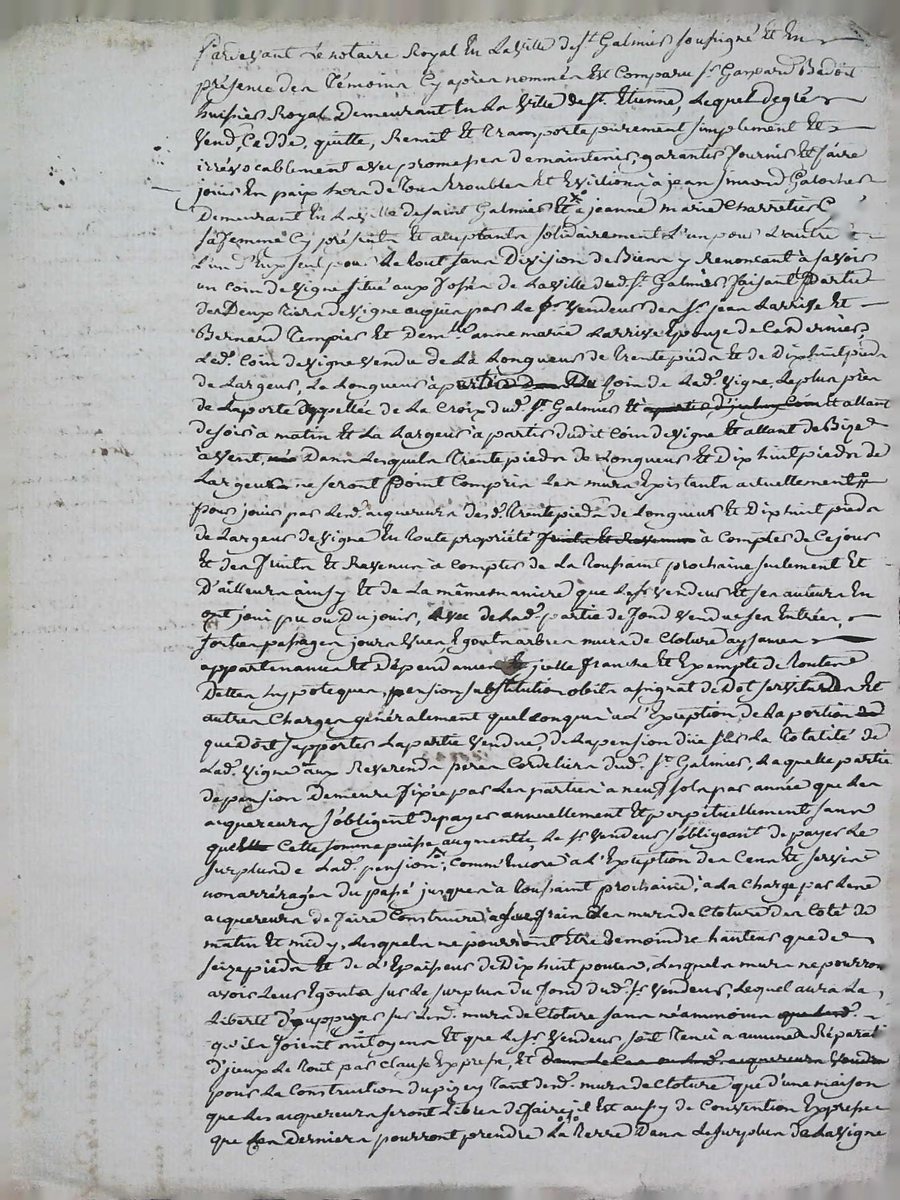 Pardevant Le notaire Royal En La Ville de St. Galmier soussigné Et En
présence des Témoins Cy après nommés Est Comparu Sr. Gaspard Badoit
huissier Royal Demeurant En La Ville de St. Etienne, Lequel de gré
Vend, Cedde, quitte, Remet Et Transporte purement simplement Et
irrévocablement avec promesses de maintenir, garantir fournir Et faire
jouir En paix hors de Tous Troubles Et Evictions à jean Simond
Demeurant En La Ville de Saint Galmier Et à jeanne marie Charretier
sa femme Cy présents Et aceptants solidairement L'un pour L'autre
L'un d'Eux seul pour Le tout sans Division de Biens y Renonçant à savoir
un Coin de Vigne situé aux fossés de La Ville dud. St. Galmier faisant partie
des Deux tiers de Vigne acquis par Le Sr. Vendeur des Srs. jean Larrive Et
Bernard Tempier Et Demlle. anne marie Larrive Epouze de Ce dernier,
Led. Coin de Vigne Vendu de La Longueur de Trente pieds Et de Dix huit pieds
de Largeur, La Longueur à partir Du Coin de Lad. Vigne Le plus près
de La porte appellée de La Croix dud. St. Galmier Et allant
de soir à matin Et La Largeur à partir dudit Coin de Vigne Et allant de Bize
à Vent, Dans Lesquels Trente pieds de Longueur Et Dix huit pieds de
Largeur ne seront point Compris Les murs Existants actuellement
pour jouir par Lesd. acquereurs desd. Trente pieds de Longueur Et Dix huit pieds
de Largeur de Vigne En toute propriété fruits Et Revenus à Compter de Ce jour
Et des fruits Et Revenus à Compter de La Toussaint prochaine seulement Et
D'ailleurs ainsy Et de La même maniere que Led. Sr. Vendeur Et ses auteurs En
ont joui pu ou Du jouir, avec de Lad. partie de fond Vendue ses Entrées,
sorties passages jours Vues, Egouts arbres murs de Cloture aysances
appartenances Et Dépendances Et jcelle franche Et Exempte de toutes
Dettes hypoteques, pension substitution obits assignat de Dot servitudes Et
autres Charges généralement quelconques à L'Exception de La portion
que doit supporter La partie Vendue, de La pension düe sur La Totalité de
Lad. Vigne aux Reverends peres Cordeliers dud. St. Galmier, Laquelle partie
de pension Demeure fixée par Les parties à neuf sols par année que Les
acquereurs s'obligent de payer annuellement Et perpétuellement sans
que Cette somme puisse augmenter, Le Sr. Vendeur s'obligeant de payer Le
surplus de Lad. pension, Comm'Encore à L'Exception des Cens Et servis
non arréragés du passé jusques à Toussaint prochaine, à La Charge par Les
acquereurs de faire Construire à Leurs frais Les murs de Cloture des Coté de
matin Et midy, Lesquels ne pourront Etre de moindre hauteur que de
seize pieds Et de L'Epaisseur de Dix huit pouces, Lesquels murs ne pourron
avoir Leurs Egouts sur Le surplus du fond dud. Sr. Vendeur, Lequel aura La
Liberté d'appuyer sur Lesd. murs de Cloture sans néammoins
qu'ils soient mitoyens Et que Led. Sr. Vendeur soit Tenu à aucunes Réparat
d'jceux Le Tout par Clause Expresse, Et
pour La Construction du pizey Tant desd. murs de Cloture que d'une maison
que Les acquereurs seront Libres de faire, jl Est aussy de Convention Expresse
que Ces Derniers pourront prendre La Terre Dans Le surplus de La Vigne